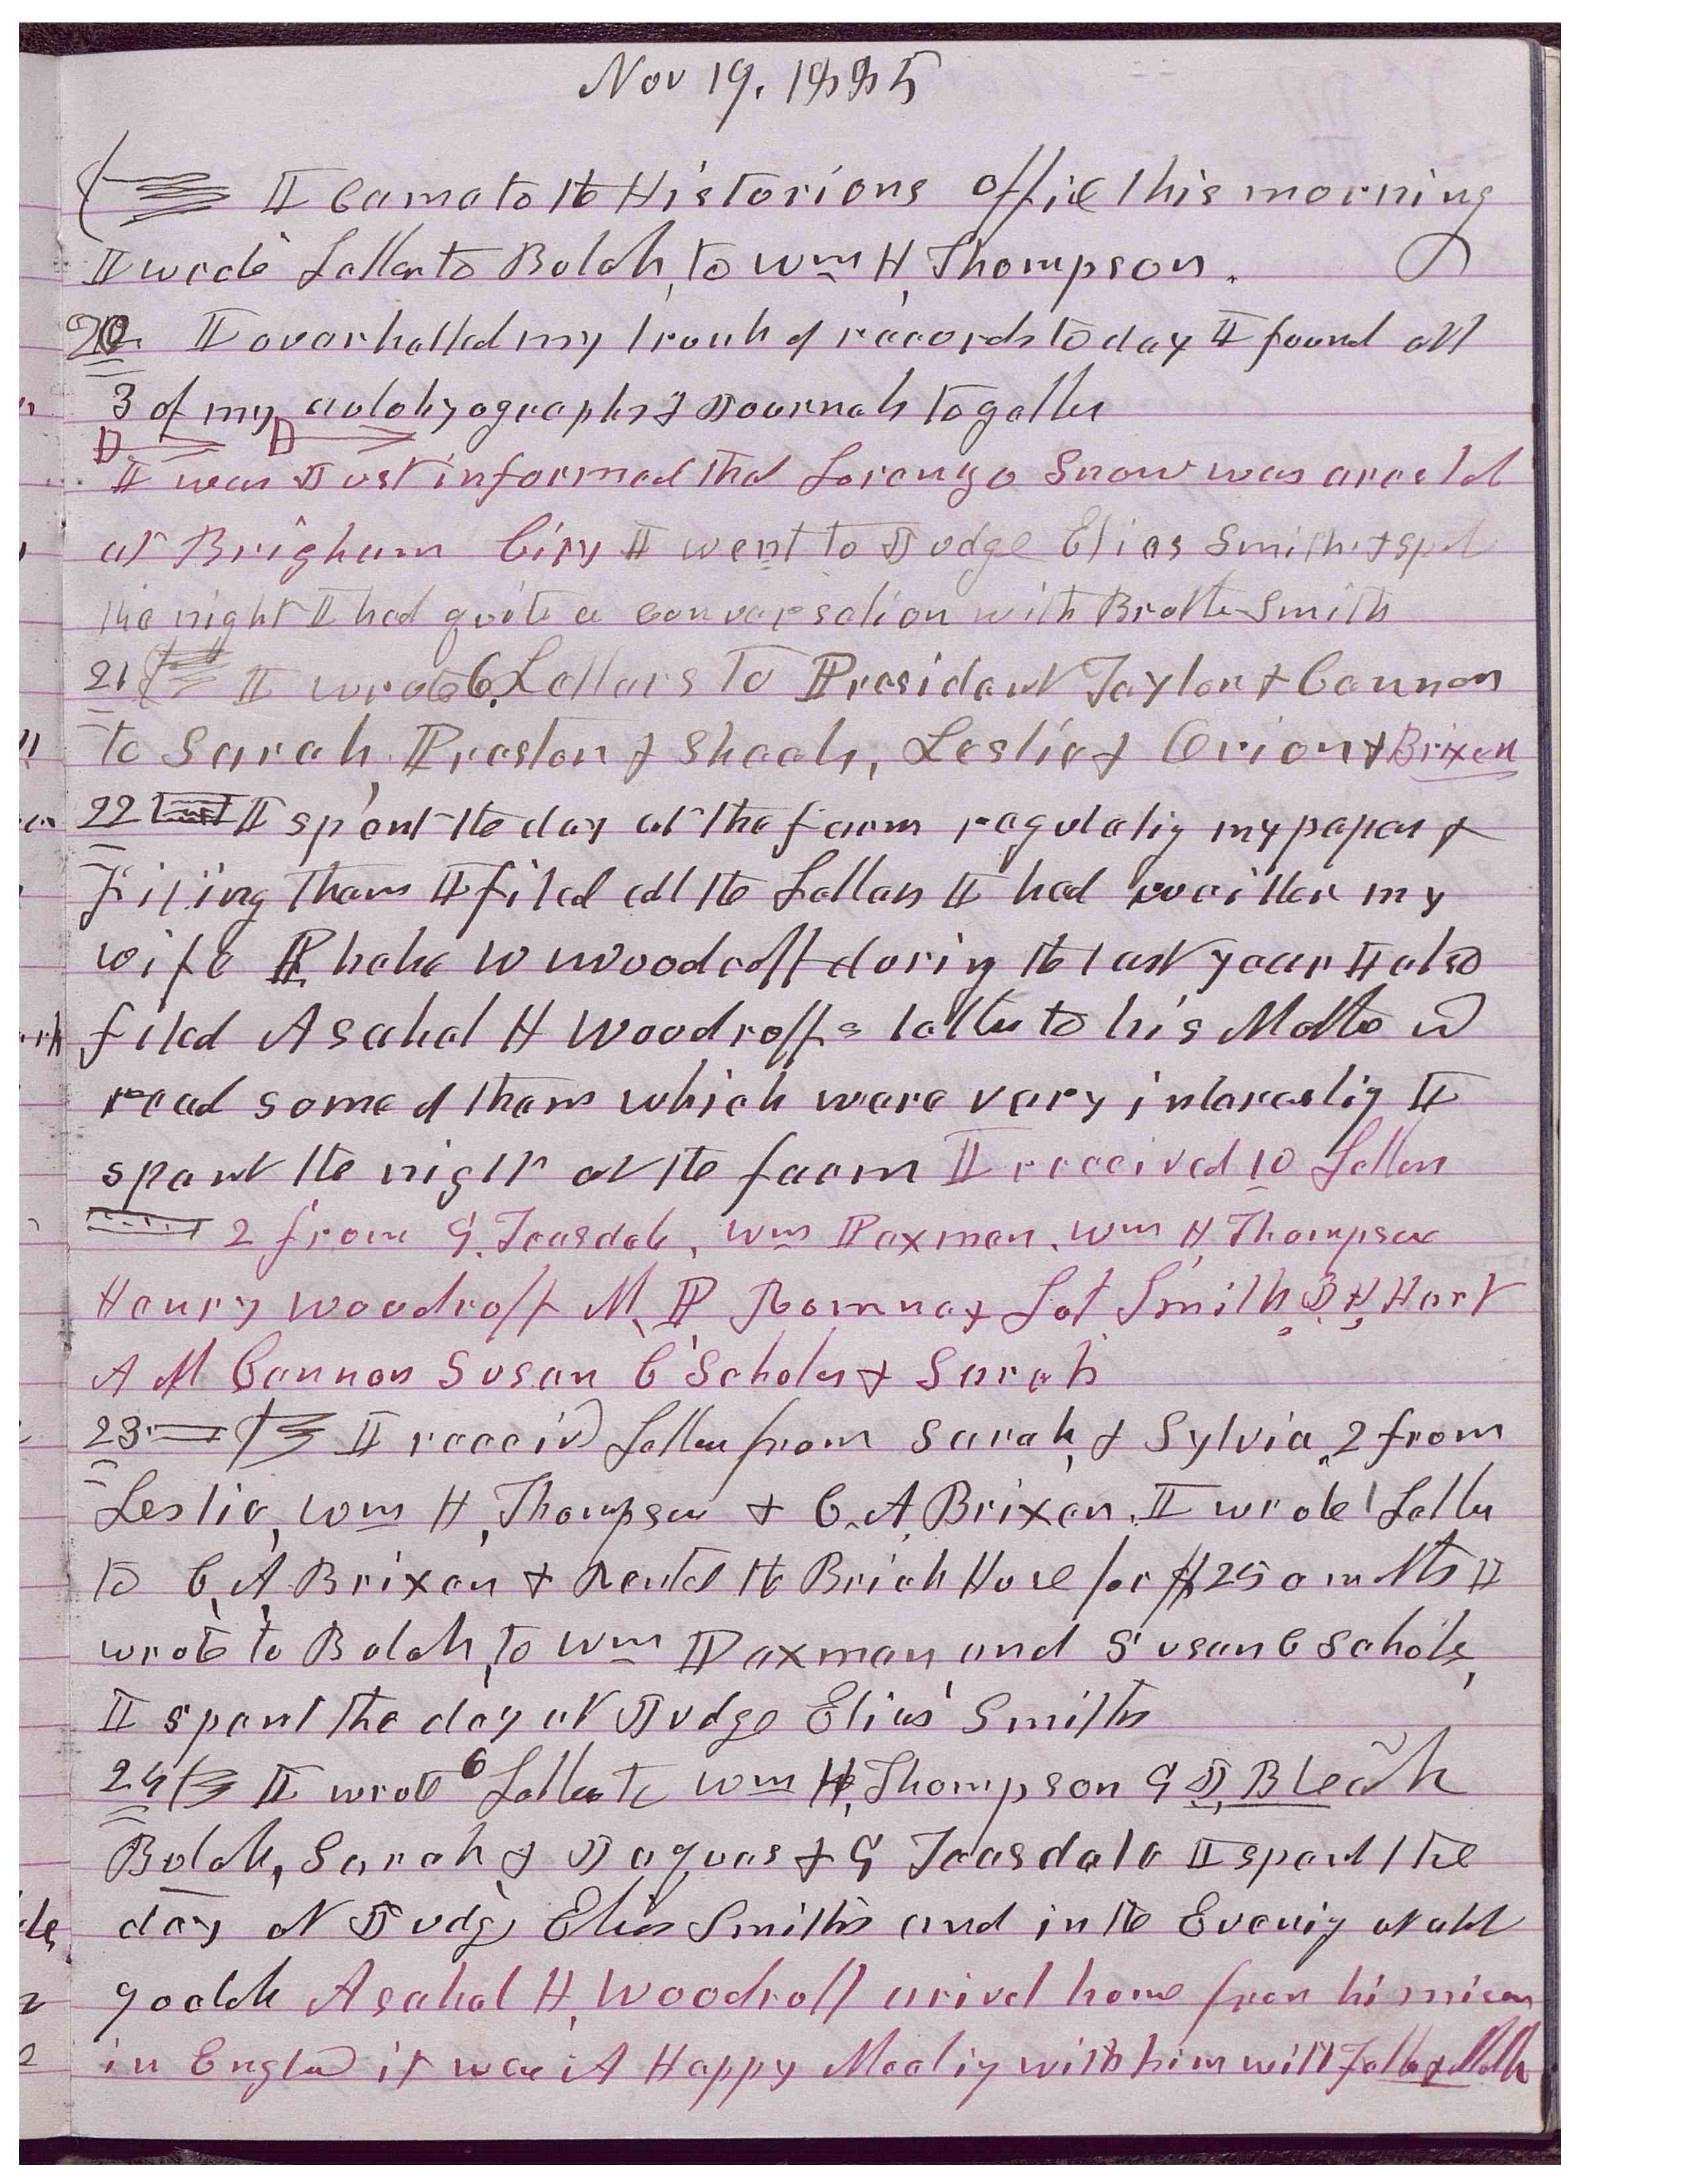 Nov 19, 1885
I Came to the Historians office this morning
I wrote Letter to Bulah, to Wm H, Thompson.
20 I overhalled my trunk of records to day I found all
3 of my autobyographs & Journals together
I was Just informed that Lorenzo Snow was arested
at Brigham City I went to Judge Elias Smith & spent
the night I had quite a conversation with Brother Smith
21 I wrote 6 Letters to President Taylor & Cannon
to Sarah, Preston & Sheah, Leslie & Orion & Brixen
22 I spent the day at the farm regulatig my papers &
Filing them I filed all the Letters I had written my
wife Phebe W Woodruff durig the last year I also
filed Asahel H Woodruffs letters to his Mother
read some of them which were very interestig I
spent the night at the farm I received 10 Letters
2 from G, Teasdale, Wm Paxman, Wm H, Thompson
Henry Woodruff M, P Romney Lot Smith, J, H, Hart
A M Cannon Susan C Scholes & Sarah
23 I receivd Letters from Sarah, & Sylvia, 2 from
Leslie, Wm H, Thompson & C, A, Brixen, I wrote 1 Letter
to C, A, Brixen & Rented the Brick House for $25 a month I
wrote to Bulah, to Wm Paxman, and Susan C Scholes,
I spent the day at Judge Elias Smiths
24 I wrote 6 Letters to Wm H, Thompson G J, Bleak
Bulah, Sarah & Jaques & G Teasdale I spent the
day at Judge Elias Smiths and in the Evenig at
Asahel H, Woodruff arived home from his mision
in England it was A Happy Meetig with him with Father & Mother